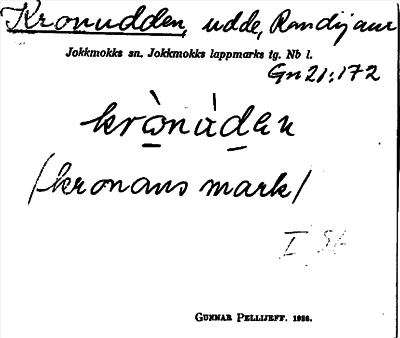 Kronudden, udde, Randijaur
Jokkmokks sn. Jokkmokks lappmarks tg. Nb l.
Gn 21:172
krò̲nùd̲en
/kronans mark/
I
GUNNAR PELLIJEFF. 1936.